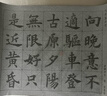 向晚意不
適驅車登
古原夕陽
無限好只
是近黃昏